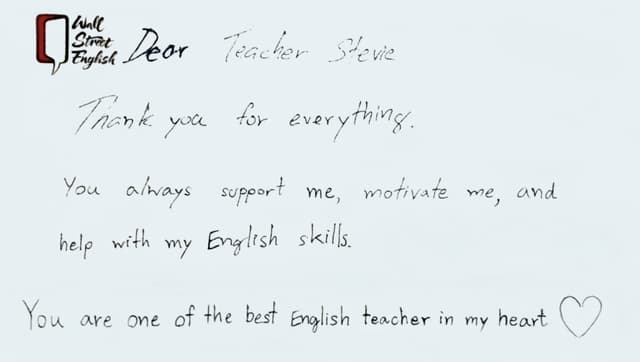 Wall
Street
English
Dear Teacher Stevie
Thank you for everything.
You always support me, motivate me, and
help with my English skills.
You are one of the best English teacher in my heart